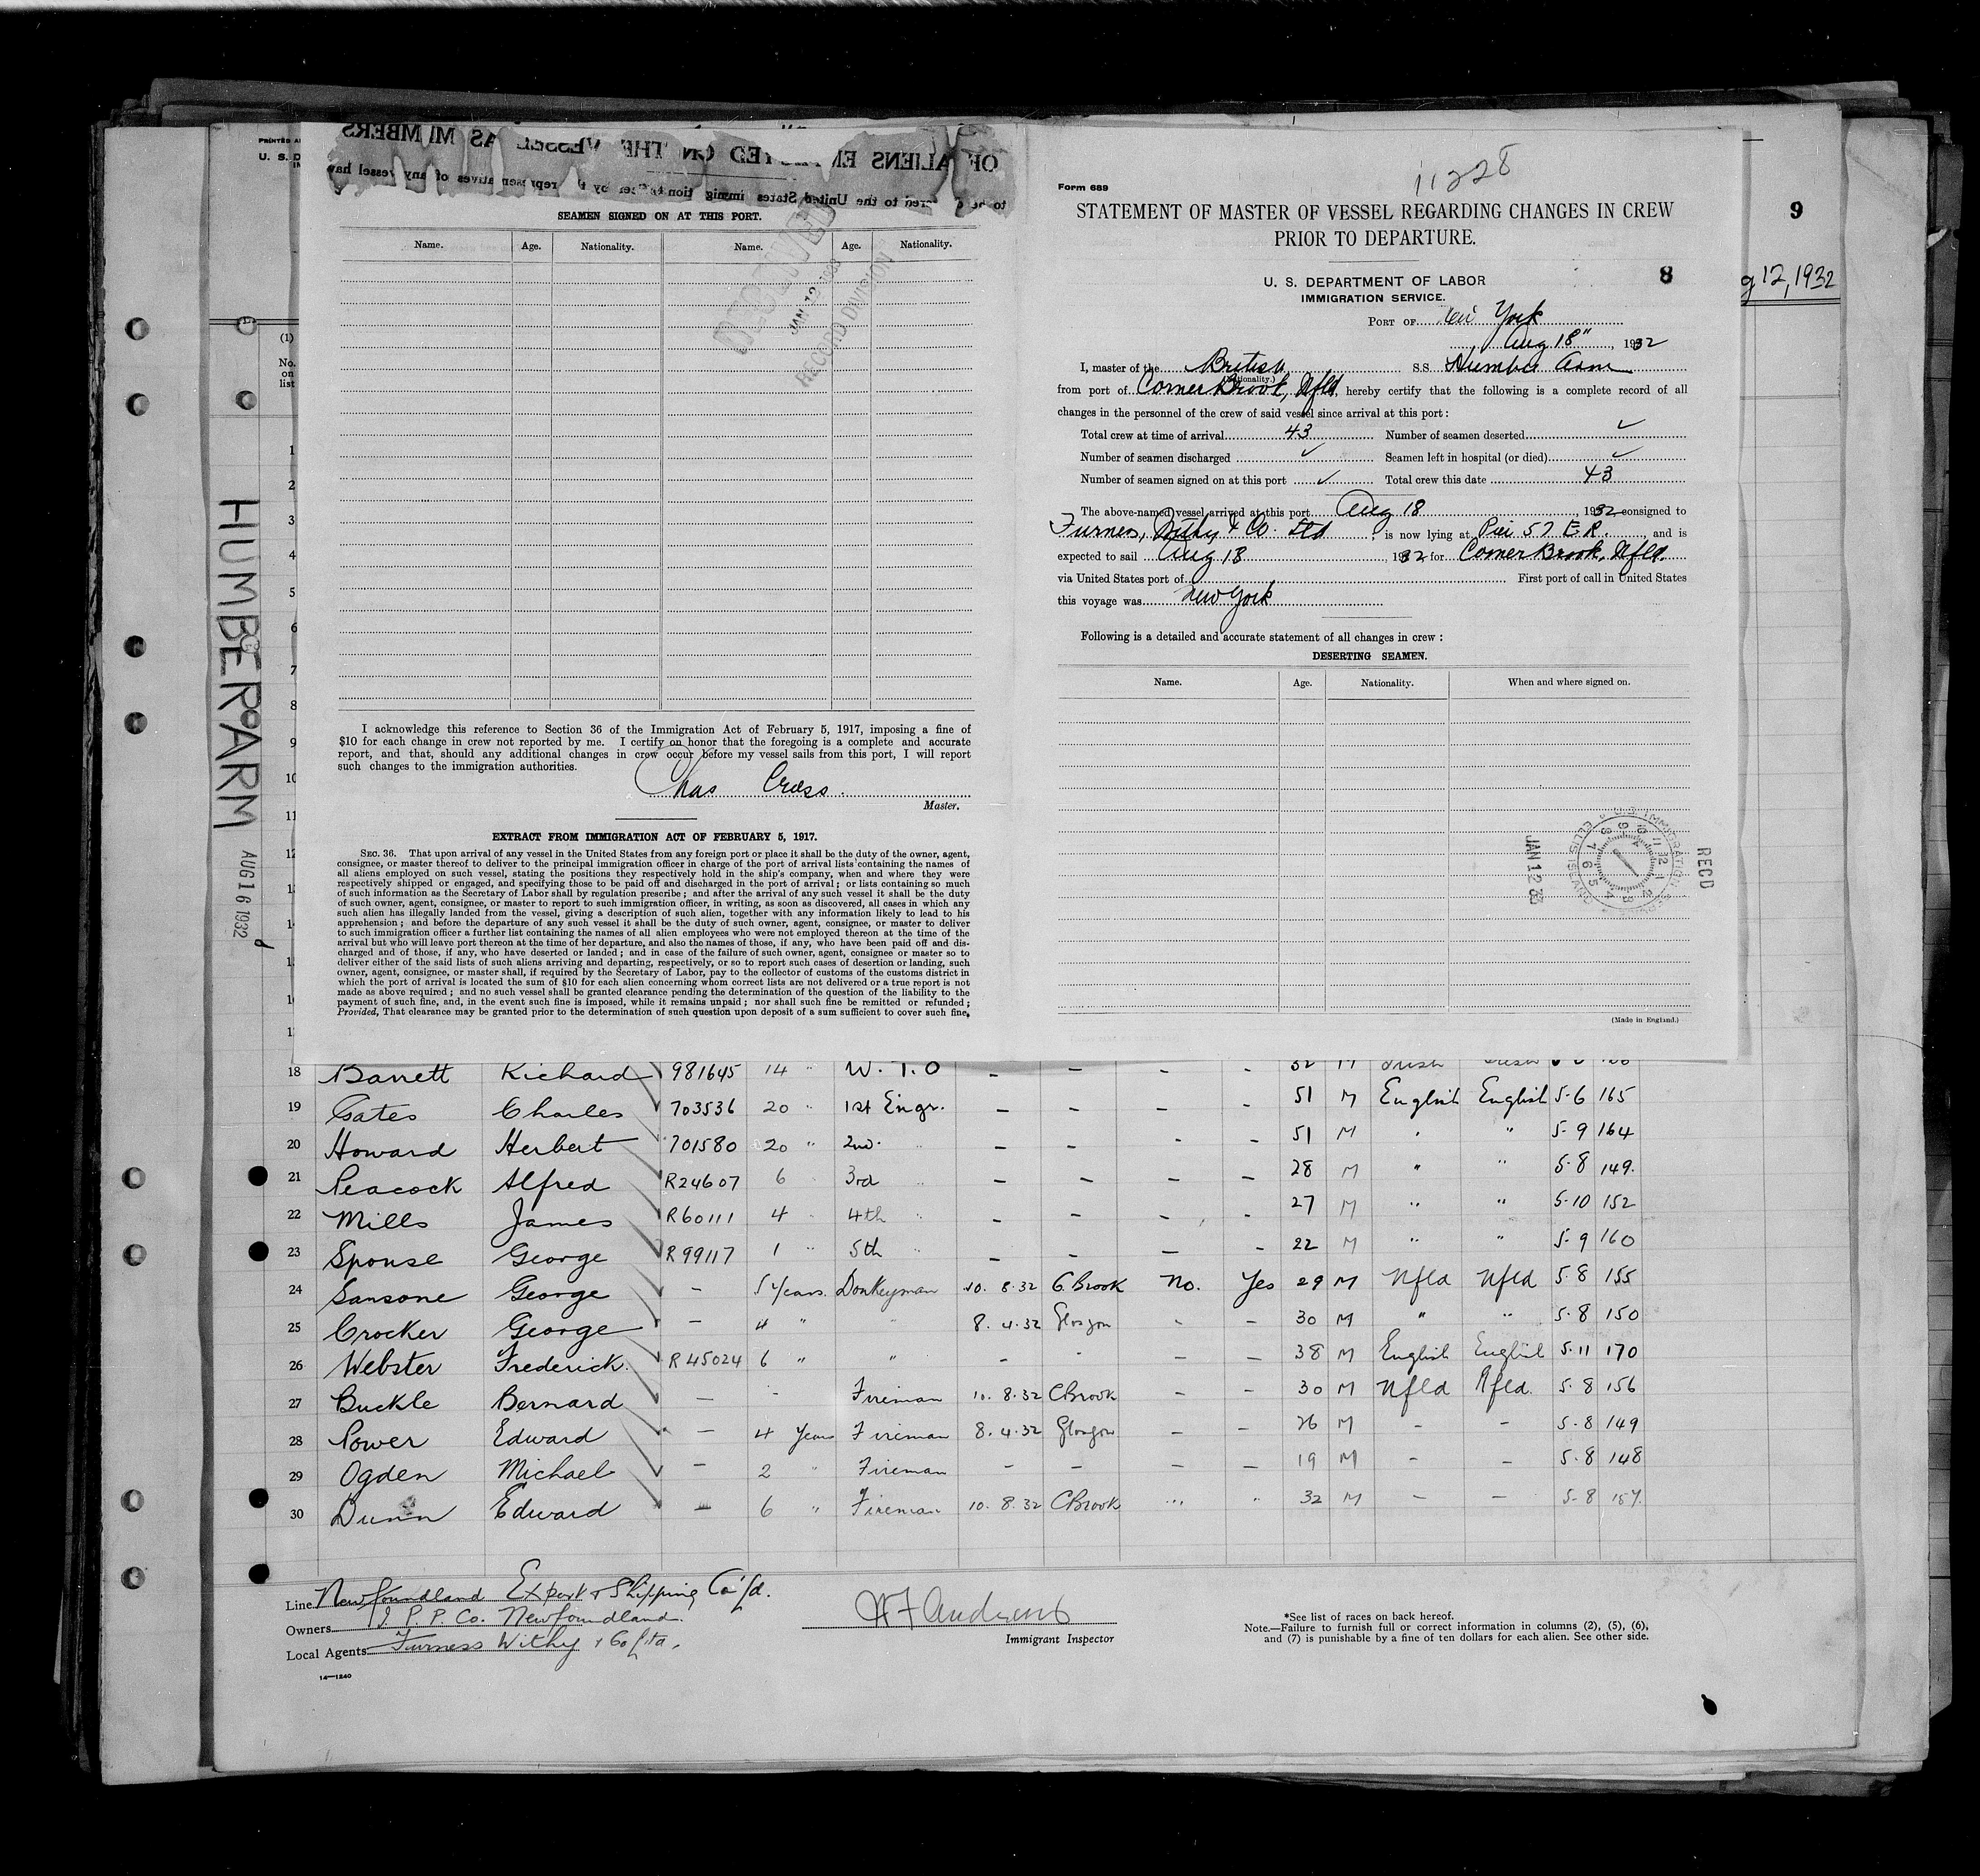 OF ALIENS EM
TED ON THE VESSEL AS MEMBERS
to the United States immig
representatives of any vessel hav
SEAMEN SIGNED ON AT THIS PORT.
Name. Age. Nationality. Name. Age. Nationality.
RECEIVED
JAN 12 1933
RECORD DIVISION
I acknowledge this reference to Section 36 of the Immigration Act of February 5, 1917, imposing a fine of
$10 for each change in crew not reported by me. I certify on honor that the foregoing is a complete and accurate
report, and that, should any additional changes in crew occur before my vessel sails from this port, I will report
such changes to the immigration authorities.
Chas Cross.
Master.
EXTRACT FROM IMMIGRATION ACT OF FEBRUARY 5, 1917.
SEC. 36. That upon arrival of any vessel in the United States from any foreign port or place it shall be the duty of the owner, agent,
consignee, or master thereof to deliver to the principal immigration officer in charge of the port of arrival lists containing the names of
all aliens employed on such vessel, stating the positions they respectively hold in the ship's company, when and where they were
respectively shipped or engaged, and specifying those to be paid off and discharged in the port of arrival; or lists containing so much
of such information as the Secretary of Labor shall by regulation prescribe; and after the arrival of any such vessel it shall be the duty
of such owner, agent, consignee, or master to report to such immigration officer, in writing, as soon as discovered, all cases in which any
such alien has illegally landed from the vessel, giving a description of such alien, together with any information likely to lead to his
apprehension; and before the departure of any such vessel it shall be the duty of such owner, agent, consignee, or master to deliver
to such immigration officer a further list containing the names of all alien employees who were not employed thereon at the time of the
arrival but who will leave port thereon at the time of her departure, and also the names of those, if any, who have been paid off and dis-
charged and of those, if any, who have deserted or landed; and in case of the failure of such owner, agent, consignee or master so to
deliver either of the said lists of such aliens arriving and departing, respectively, or so to report such cases of desertion or landing, such
owner, agent, consignee, or master shall, if required by the Secretary of Labor, pay to the collector of customs of the customs district in
which the port of arrival is located the sum of $10 for each alien concerning whom correct lists are not delivered or a true report is not
made as above required; and no such vessel shall be granted clearance pending the determination of the question of the liability to the
payment of such fine, and, in the event such fine is imposed, while it remains unpaid; nor shall such fine be remitted or refunded;
Provided, That clearance may be granted prior to the determination of such question upon deposit of a sum sufficient to cover such fine,
11228
Form 689
STATEMENT OF MASTER OF VESSEL REGARDING CHANGES IN CREW
PRIOR TO DEPARTURE.
U. S. DEPARTMENT OF LABOR
IMMIGRATION SERVICE.
8
PORT OF New York
Aug 18", 1932
I, master of the British S.S. Humber Arm
(Nationality.)
from port of Corner Brook, Nfld, hereby certify that the following is a complete record of all
changes in the personnel of the crew of said vessel since arrival at this port:
Total crew at time of arrival 43 Number of seamen deserted ✓
Number of seamen discharged ✓ Seamen left in hospital (or died) ✓
Number of seamen signed on at this port ✓ Total crew this date 43
The above-named vessel arrived at this port Aug 18, 1932 consigned to
Furness, Withy & Co. Ltd, is now lying at Pier 57 E R., and is
expected to sail Aug 18, 1932 for Corner Brook, Nfld.
via United States port of First port of call in United States
this voyage was New York
Following is a detailed and accurate statement of all changes in crew:
DESERTING SEAMEN.
Name. Age. Nationality. When and where signed on.
RECD
JAN 12 33
U.S. IMMIGRATION
ELLIS ISLAND
(Made in England.)
9
g 12, 1932
PRINTED
U. S. D
(1)
No.
on
list
1
2
3
4
5
6
7
8
9
10
11
12
HUMBER ARM
AUG 16 1932
18 Barrett Richard 981645 14 " W. T. O - - - - 32 M Irish Irish
19 Gates Charles 703536 20 " 1st Engr. - - - - 51 M English English 5-6 165
20 Howard Herbert 701580 20 " 2nd " - - - - 51 M " " 5-9 164
21 Peacock Alfred R24607 6 " 3rd " - - - - 28 M " " 5-8 149.
22 Mills James R60111 4 " 4th " - - - - 27 M " " 5-10 152
23 Spouse George R99117 1 " 5th " - - - - 22 M " " 5-9 160
24 Sansone George - 5 Years Donkeyman 10.8.32 C. Brook No. Yes 29 M Nfld Nfld 5-8 155
25 Crocker George - 4 " " 8.4.32 Glasgow - - 30 M " " 5-8 150
26 Webster Frederick. R45024 6 " " - - - - 38 M English English 5-11 170
27 Buckle Bernard - - Fireman 10.8.32 C Brook - - 30 M Nfld Nfld. 5-8 156
28 Power Edward - 4 Years Fireman 8.4.32 Glasgow - - 26 M - - 5-8 149
29 Ogden Michael - 2 " Fireman - - - - 19 M - - 5-8 148
30 Dunn Edward - 6 " Fireman 10.8.32 C Brook " " 32 M - - 5-8 157.
Line Newfoundland Export & Shipping Co Ld.
Owners I. P. P. Co. Newfoundland.
Local Agents Furness Withy & Co Lta.
14-1240
Immigrant Inspector
*See list of races on back hereof.
Note.—Failure to furnish full or correct information in columns (2), (5), (6),
and (7) is punishable by a fine of ten dollars for each alien. See other side.